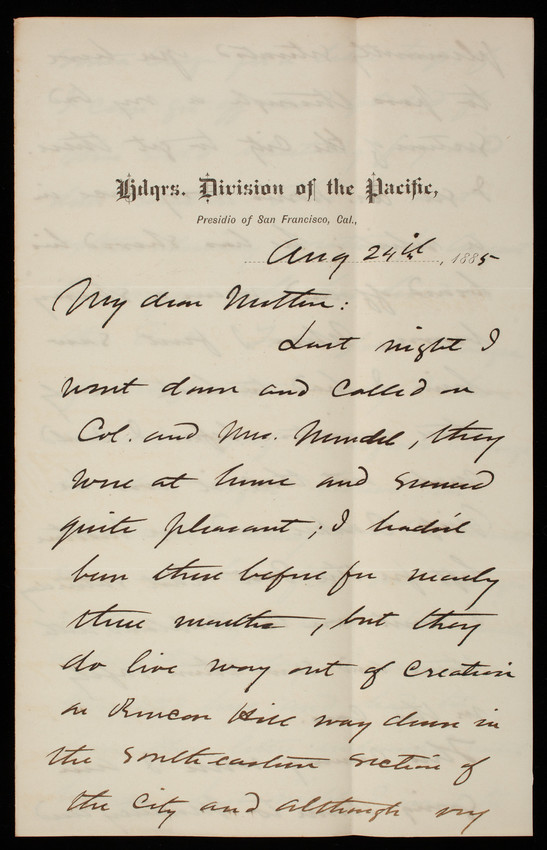 Hdqrs. Division of the Pacific,
Presidio of San Francisco, Cal.,
Aug 24th, 1885
My dear Mother:
Last night I
went down and called on
Col. and Mrs. Mendel, they
were at home and seemed
quite pleasant; I hadn't
been there before for nearly
three months, but they
do live way out of creation
on Rincon Hill way down in
the southeastern section of
the City and although very